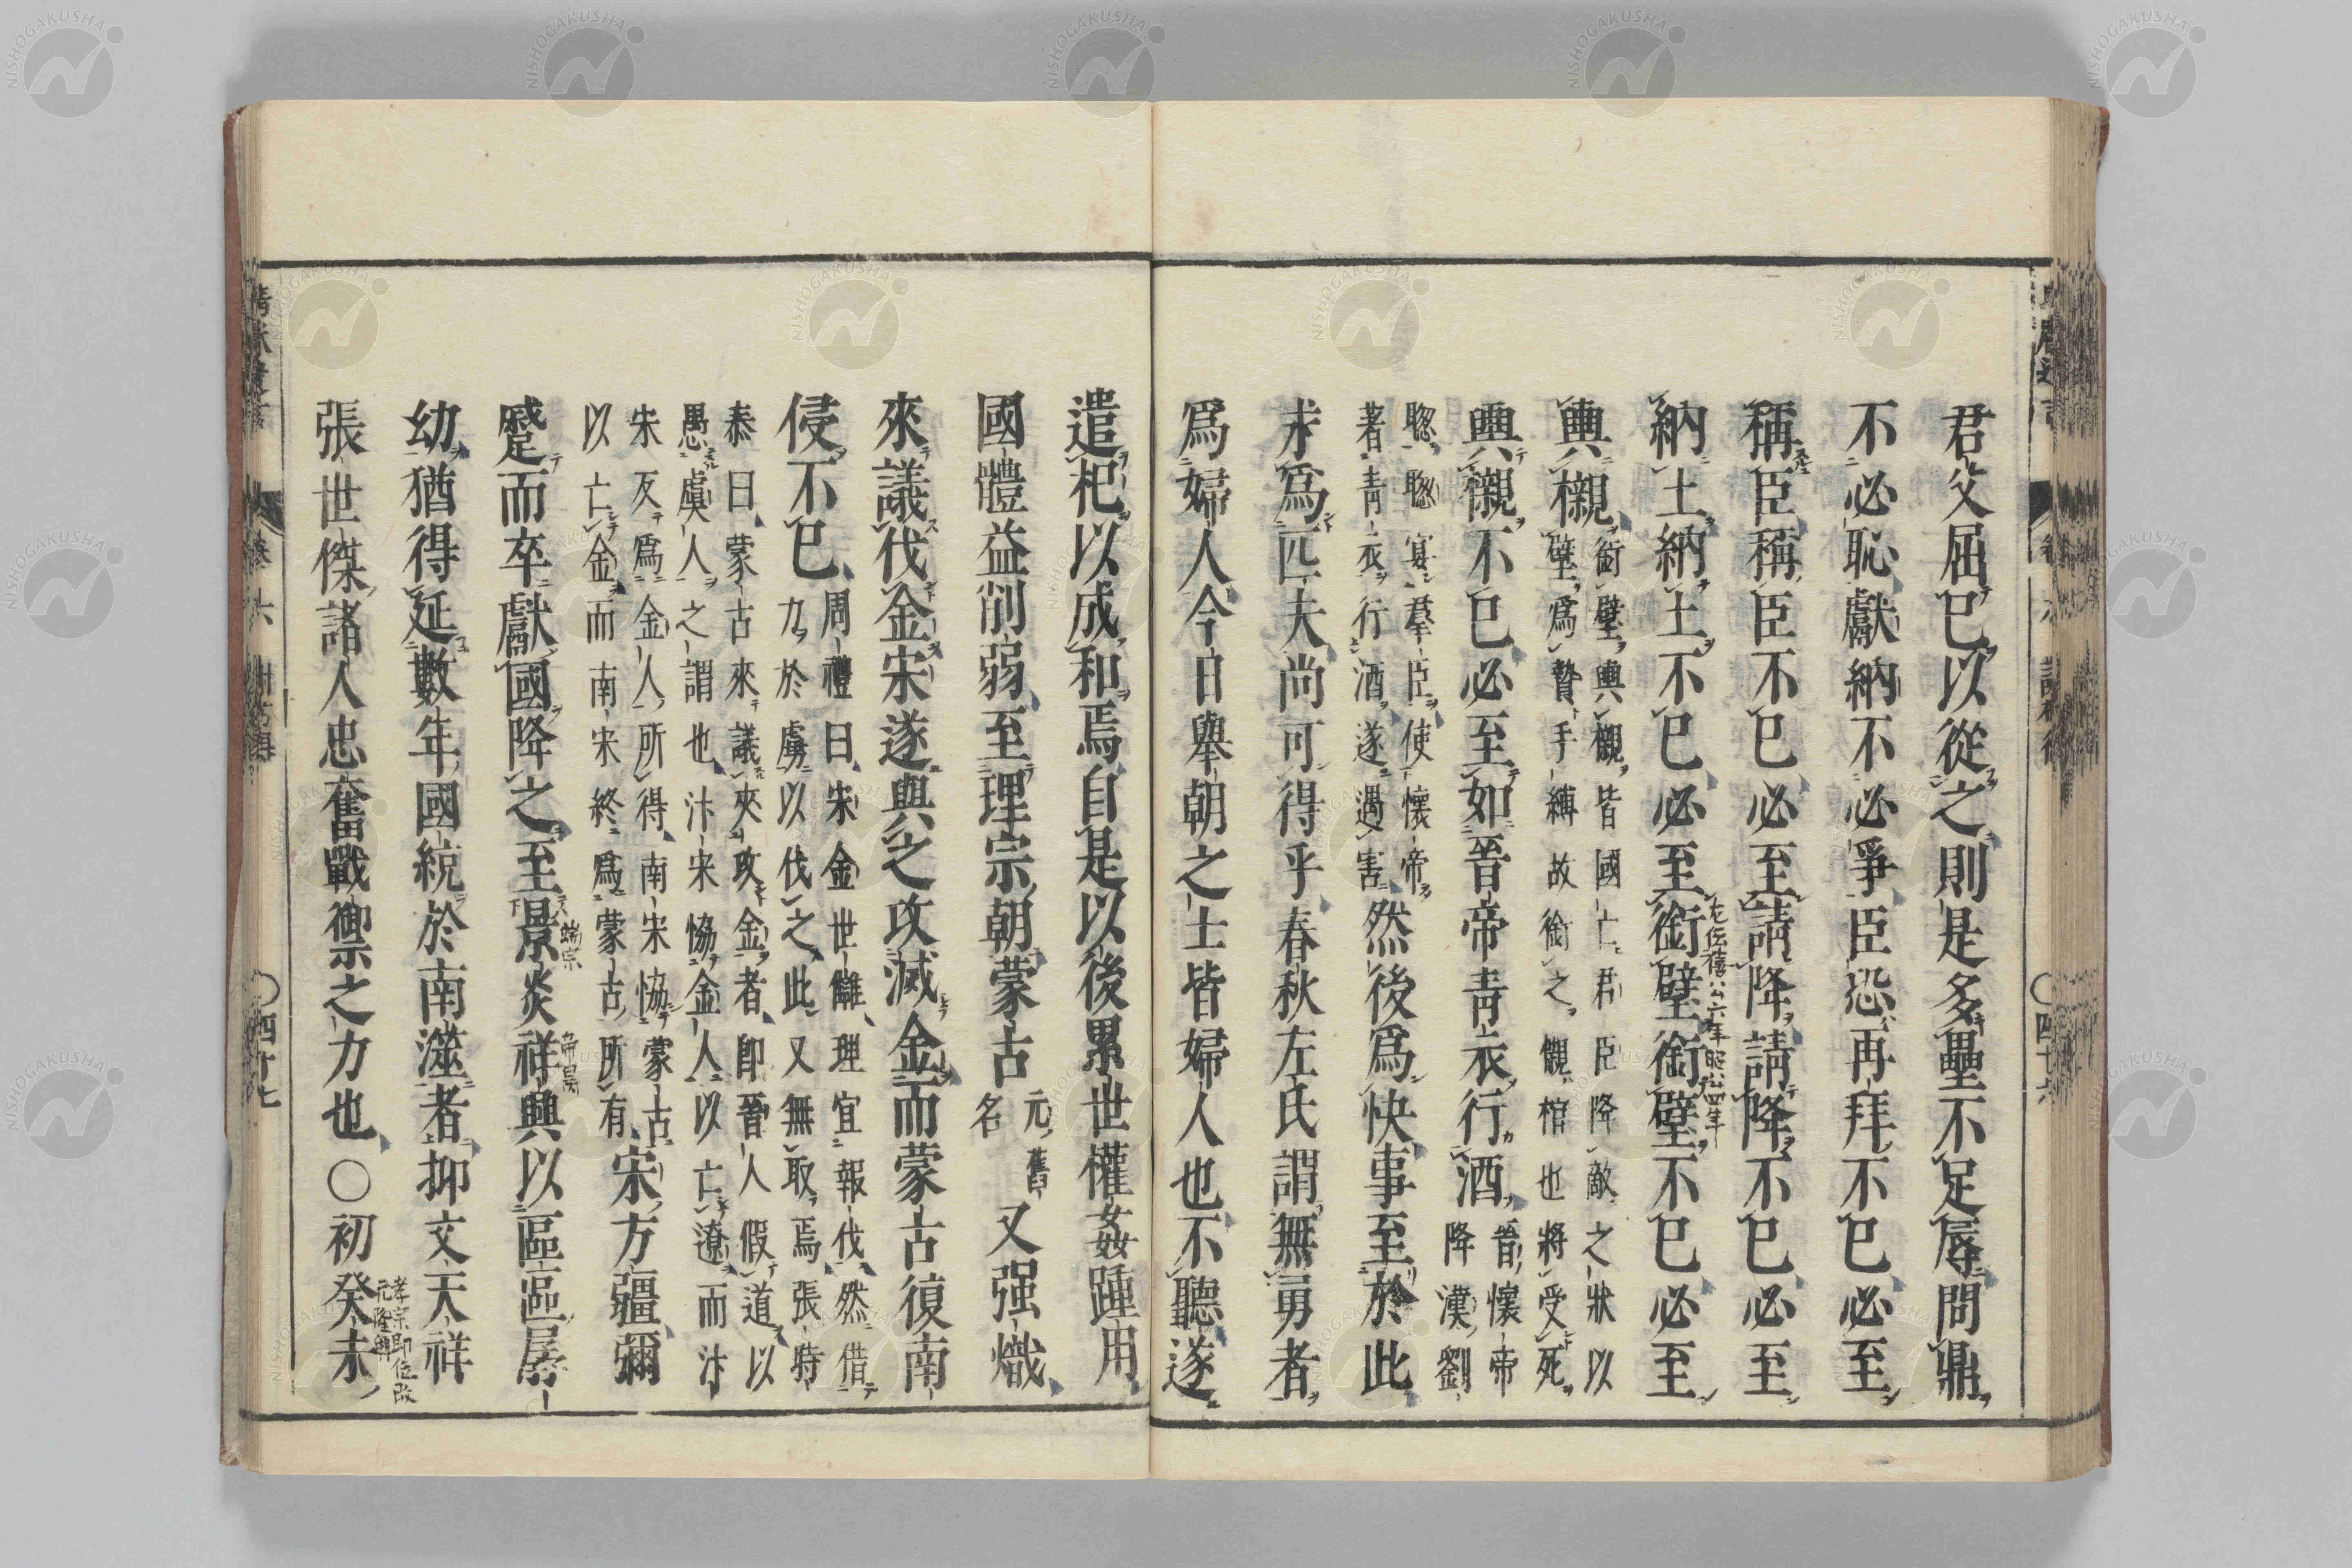 君父屈已以從之則是多壘不足辱問鼎
不必恥獻納不必爭臣恐再拜不已必至
稱臣稱臣不已必至請降請降不已必至
納土納土不已必至銜璧銜璧不已必至
左伝僖公六年昭公四年
輿櫬
銜璧輿櫬皆國亡君臣降敵之狀以
璧爲贄手縛故銜之櫬棺也將受死
輿櫬不已必至如晉帝青衣行酒
晉懷帝
降漢劉
聰聰宴羣臣使懷帝
著青衣行酒遂遇害
然後爲快事至於此
求爲匹夫尚可得乎春秋左氏謂無勇者
爲婦人今日舉朝之士皆婦人也不聽遂
遣杞以成和焉自是以後累世權姦踵用
國體益削弱至理宗朝蒙古
元舊
名
又强熾
來議伐金宋遂與之攻滅金而蒙古復南
侵不已
周禮曰宋金世雠理宜報伐然借
力於虜以伐之此又無取焉張時
泰曰蒙古來議夾攻金者卽晉人假道以
愚虞人之謂也汴宋恊金人以亡遼而汴
宋反爲金人所得南宋恊蒙古
以亡金而南宋終爲蒙古所有
宋方疆彌
蹙而卒獻國降之至景炎祥興以區區孱
端宗
帝昺
幼猶得延數年國統於南澨者抑文天祥
張世傑諸人忠奮戰禦之力也○初癸未
孝宗卽位改
元隆興
卷六
○四十七
○四十六
NISHOGAKUSHA